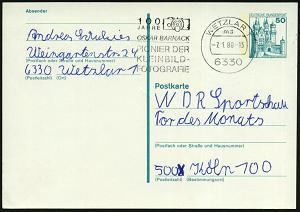 Absender
Andreas
Weingartenstr. 24
(Postfach oder Straße und Hausnummer)
6330 Wetzlar 1
(Postleitzahl) (Ort)
100
JAHRE
OSKAR BARNACK
PIONIER DER
KLEINBILD-
FOTOGRAFIE
WETZLAR 1
ma
-7.1.80-15
6330
DEUTSCHE BUNDESPOST
50
Postkarte
WDR Sportschau
Tor des Monats
(Postfach oder Straße und Hausnummer)
Köln 100
(Postleitzahl) (Bestimmungsort)